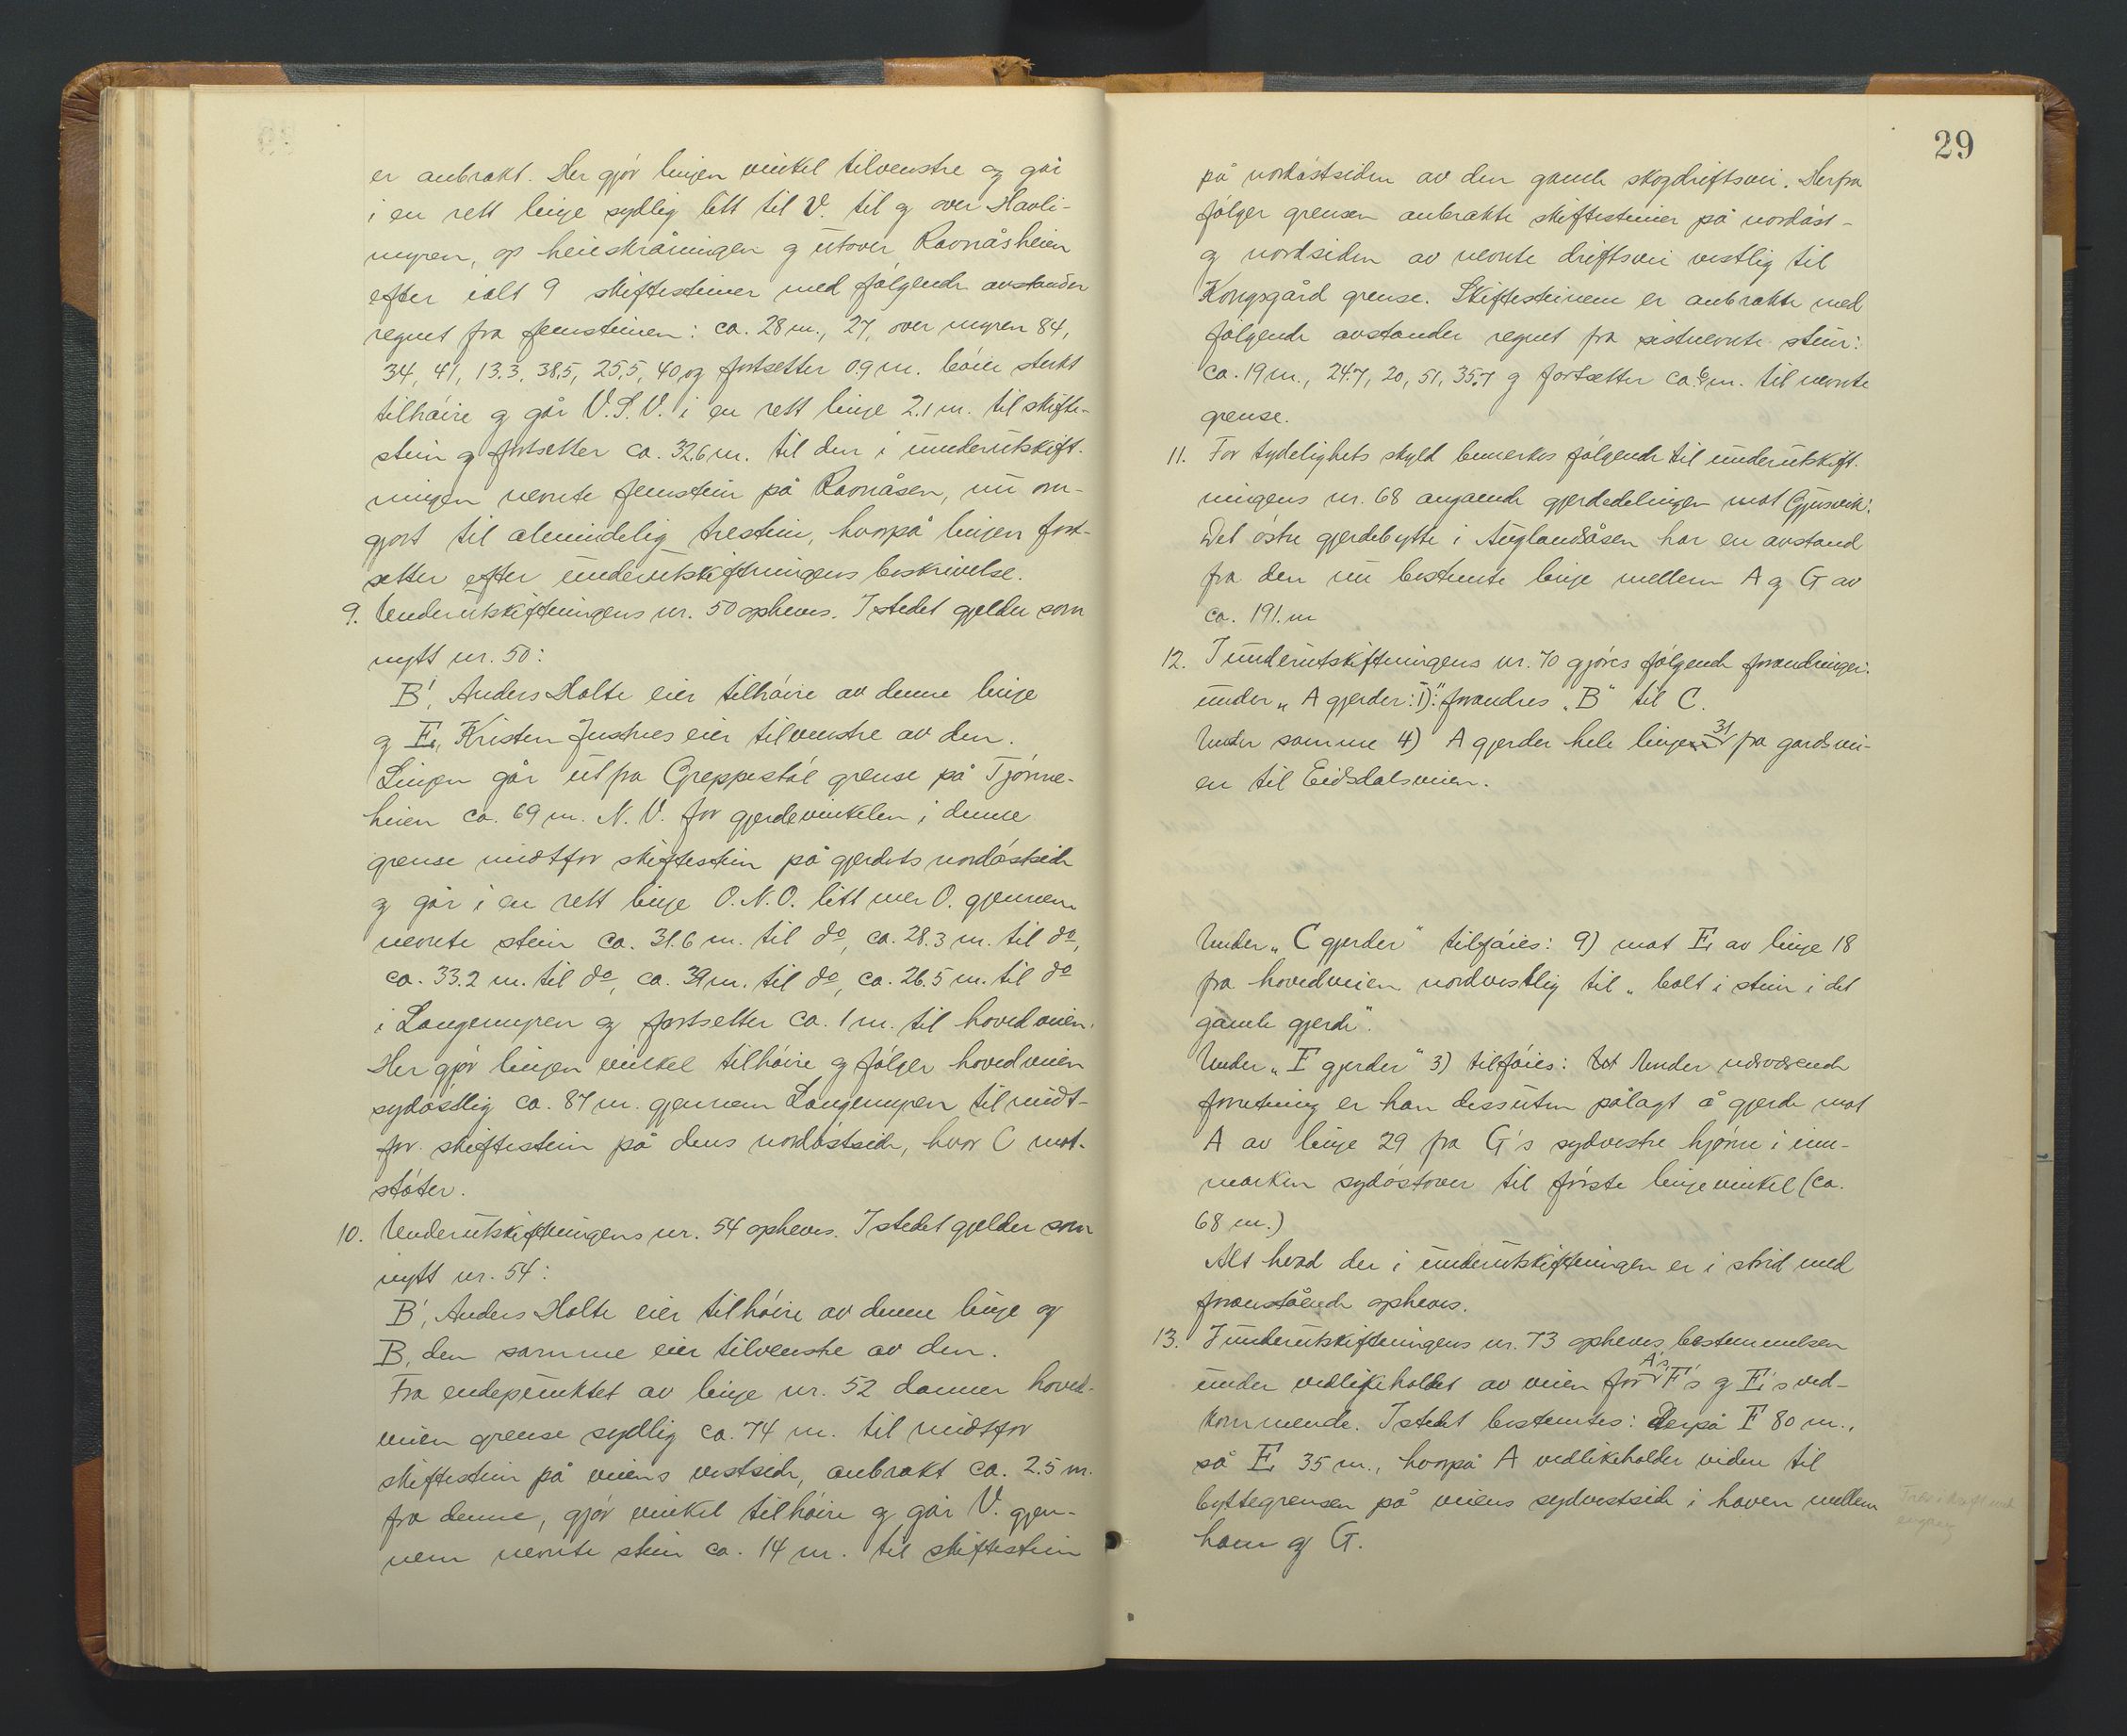 er anbrakt. Her gjør linjen vinkel tilvenstre og går
i en rett linje sydlig litt til V. til og over Havli-
myren, op heieskråningen og utover Ravnåsheien
efter ialt 9 skiftesteiner med følgende avstander
regnet fra femsteinen: ca. 28 m., 27, over myren 84,
34, 41, 13.3, 38,5, 25,5, 40 og fortsetter 0.9 m. bøier sterkt
tilhøire og går V.S.V. i en rett linje 2.1 m. til skifte-
stein og fortsetter ca. 32.6 m. til den i underutskift-
ningen nevnte femstein på Ravnåsen, nu om-
gjort til almindelig trestein, hvorpå linjen fort-
setter efter underutskiftningens beskrivelse.
9. Underutskiftningens nr. 50 opheves. Istedet gjelder som
nytt nr. 50:
B', Anders Holte eier tilhøire av denne linje
og E, Kristen Justnes eier tilvenstre av den.
Linjen går ut fra Greppestøl grense på Tjønne-
heien ca. 69 m. N.V. for gjerdevinkelen i denne
grense midtfor skiftestein på gjerdets nordøstside
og går i en rett linje O.N.O. litt mer O. gjennem
nevnte stein ca. 31.6 m. til do, ca. 28.3 m. til do,
ca. 33.2 m. til do, ca. 39 m. til do, ca. 26.5 m. til do
i Langemyren og fortsetter ca. 1 m. til hovedveien.
Her gjør linjen vinkel tilhøire og følger hovedveien
sydøstlig ca. 87 m. gjennem Langemyren til midt-
for skiftestein på dens nordøstside, hvor C mot-
støter.
10. Underutskiftningens nr. 54 opheves. Istedet gjelder som
nytt nr. 54:
B', Anders Holte eier tilhøire av denne linje og
B, den samme eier tilvenstre av den.
Fra endepunktet av linje nr. 52 danner hoved-
veien grense sydlig ca. 74 m. til midtfor
skiftestein på veiens vestside, anbrakt ca. 2.5 m.
fra denne, gjør vinkel tilhøire og går V. gjen-
nem nevnte stein ca. 14 m. til skiftestein
29
på nordøstsiden av den gamle skogdriftsvei. Herfra
følger grensen anbrakte skiftesteiner på nordøst-
og nordsiden av nevnte driftsvei vestlig til
Kongsgård grense. Skiftesteinene er anbrakte med
følgende avstander regnet fra sistnevnte stein:
ca. 19 m., 24.7, 20, 51, 35.7 og fortsetter ca. 6 m. til nevnte
grense.
11. For tydelighets skyld bemerkes følgende til underutskift-
ningens nr. 68 angående gjerdedelingen mot Gjusvik:
Det østre gjerdebytte i Auglandsåsen har en avstand
fra den nu bestemte linje mellem A og G av
ca. 191. m
12. I underutskiftningens nr. 70 gjøres følgende forandringer:
under „A gjerder: 1):" forandres „B" til C.
Under samme 4) A gjerder hele linjen 31 fra gardsvei-
en til Eidsdalsveien.
Under „C gjerder" tilføies: 9) mot E av linje 18
fra hovedveien nordvestlig til „bolt i stein i det
gamle gjerde".
Under „F gjerder" 3) tilføies: Under nærværende
forretning er han dessuten pålagt å gjerde mot
A av linje 29 fra G's sydvestre hjørne i inn-
marken sydøstover til første linjevinkel (ca.
68 m.)
Alt hvad der i underutskiftningen er i strid med
foranstående opheves.
13. I underutskiftningens nr. 73 opheves bestemmelsen
under vedlikeholdet av veien for A's, F's og E's ved-
kommende. Istedet bestemtes: Derpå F 80 m.,
så E 35 m., hvorpå A vedlikeholder videre til
byttegrensen på veiens sydvestside i haven mellem
ham og G.